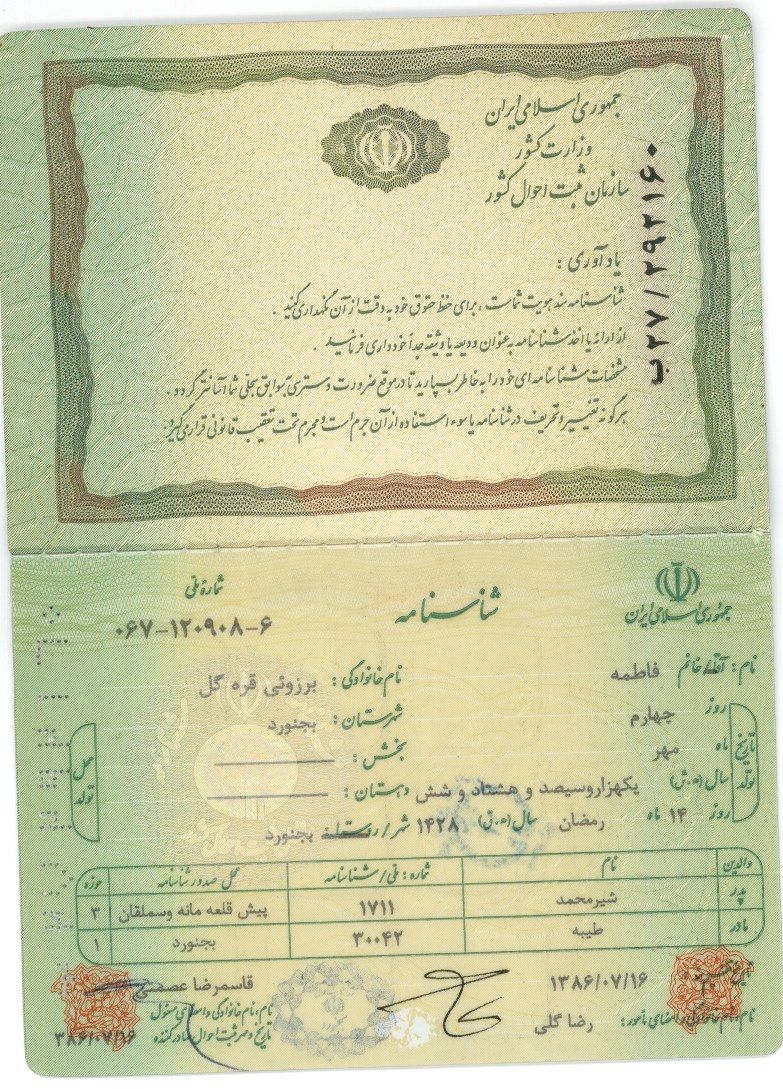 جمهوری اسلامی ایران
وزارت کشور
سازمان ثبت احوال کشور
ب۲۷/۲۹۲۱۶۰
یادآوری :
شناسنامه سند هویت شماست ، برای حفظ حقوق خود به دقت از آن نگهداری کنید .
از ارائه یا اخذ شناسنامه به عنوان ودیعه یا وثیقه جداً خودداری فرمائید .
مشخصات شناسنامه ای خود را به خاطر بسپارید تا در موقع ضرورت دسترسی به سوابق سجلی شما آسانتر گردد .
هرگونه تغییر و تحریف در شناسنامه یا سوء استفاده از آن جرم است و مجرم تحت تعقیب قانونی قرار می گیرد.
جمهوری اسلامی ایران
شناسنامه
شماره ملی
۰۶۷-۱۲۰۹۰۸-۶
نام : آقا/خانم فاطمه نام خانوادگی : برزوئی قره گل
تاریخ تولد
روز چهارم شهرستان : بجنورد
ماه مهر بخش :
سال (ه.ش) یکهزاروسیصد و هشتاد و شش دهستان :
روز ۱۴ ماه رمضان سال (ه.ق) ۱۴۲۸ شهر/روستا بجنورد
محل تولد
والدین نام شماره : ملی/شناسنامه محل صدور شناسنامه حوزه
پدر شیرمحمد ۱۷۱۱ پیش قلعه مانه وسملقان ۳
مادر طیبه ۳۰۰۴۲ بجنورد ۱
۱۳۸۶/۰۷/۱۶ قاسمرضا عصمتی
نام،نام خانوادگی و امضای مأمور : رضا گلی
نام،نام خانوادگی و امضای مسئول
تاریخ و مهر ثبت احوال صادرکننده
۳۸۶/۰۷/۱۶